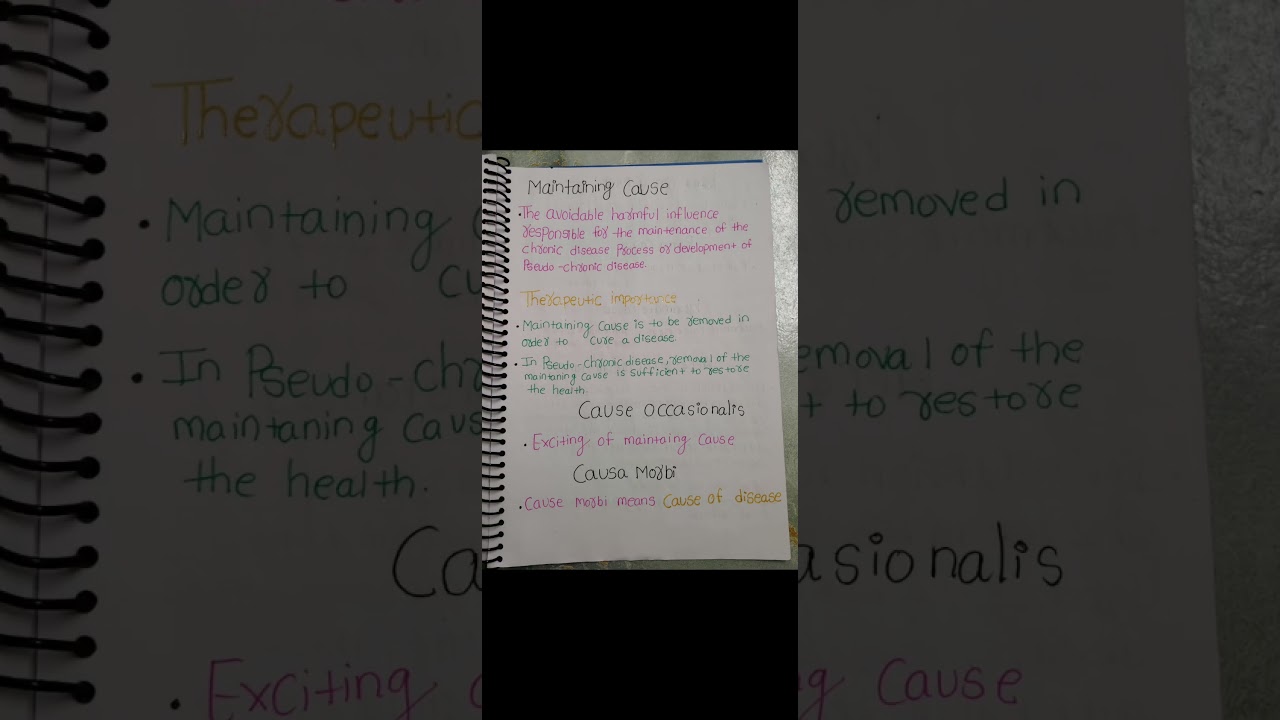 Maintaining Cause
• The avoidable harmful influence
responsible for the maintenance of the
chronic disease Process or development of
Pseudo-chronic disease.
Therapeutic importance
• Maintaining Cause is to be removed in
order to cure a disease.
• In Pseudo-chronic disease, removal of the
maintaning cause is sufficient to restore
the health
Cause Occasionalis
• Exciting of maintaing Cause
Causa Morbi
• Cause morbi means Cause of disease